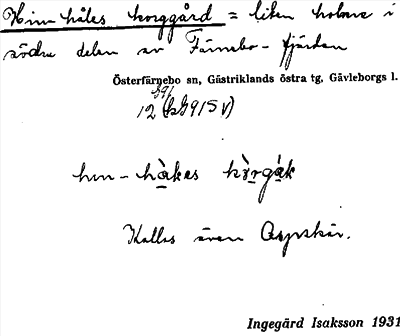 Hin håles korggård = liten holme i
södra delen av Färnebo-fjärden
Österfärnebo sn, Gästriklands östra tg, Gävleborgs l.
12
hin-håkas
Kallas även Aspskär.
Ingegärd Isaksson 1931